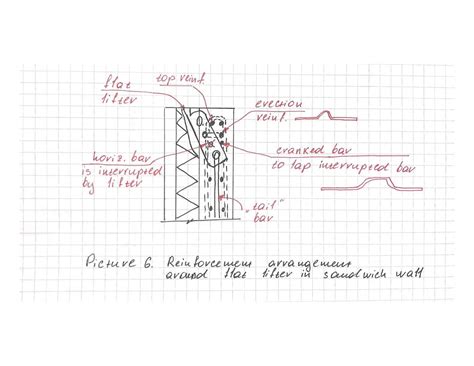 flat
lifter
top reinf.
erection
reinf.
horiz. bar
is interrupted
by lifter
cranked bar
to lap interrupted bar
"tail"
bar
Picture 6. Reinforcement arrangement
around flat lifter in sandwich wall